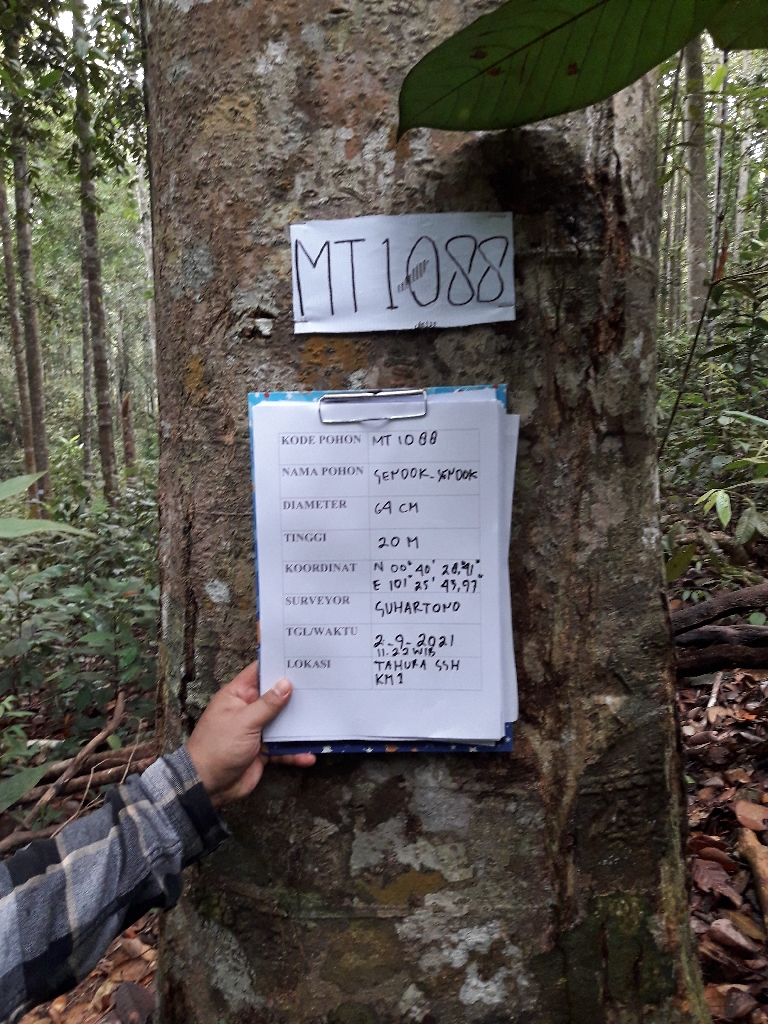 MT1088
KODE POHON MT 1088
NAMA POHON SENDOK-SENDOK
DIAMETER 64 CM
TINGGI 20 M
KOORDINAT N 00° 40' 28,41"
E 101° 25' 43,97"
SURVEYOR SUHARTONO
TGL/WAKTU 2-9-2021
11.22 WIB
LOKASI TAHURA SSH
KM 1